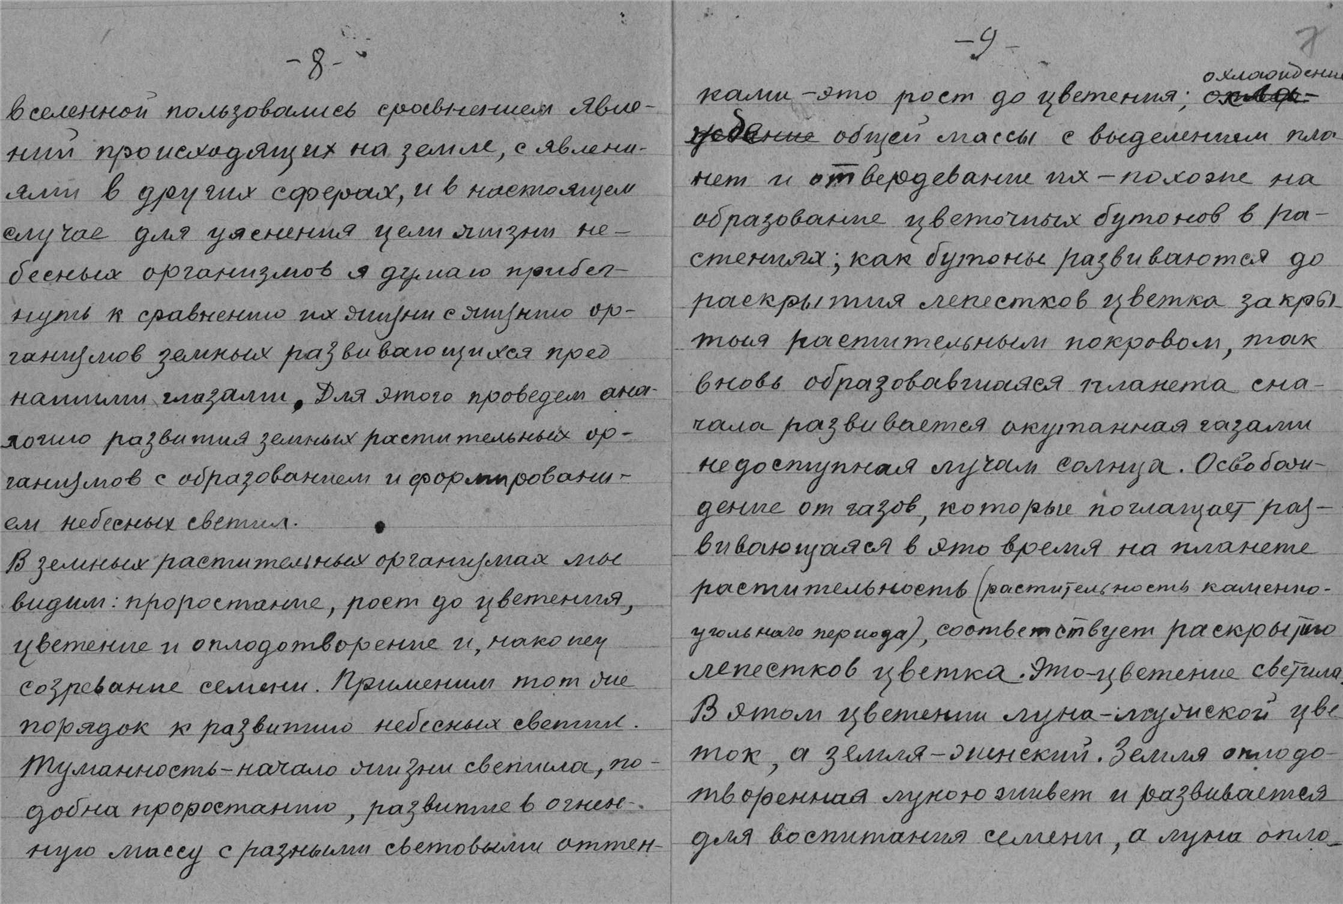 -8-
вселенной пользовались сравнением явле-
ний происходящих на земле, с явлени-
ями в других сферах, и в настоящем
случае для уяснения цели жизни не-
бесных организмов я думаю прибег-
нуть к сравнению их жизни с жизнию ор-
ганизмов земных развивающихся пред
нашими глазами. Для этого проведем ана-
логию развития земных растительных ор-
ганизмов с образованием и формировани-
ем небесных светил.
В земных растительных организмах мы
видим: проростание, рост до цветения,
цветение и оплодотворение и, наконец
созревание семени. Применим тот же
порядок к развитию небесных светил.
Туманность-начало жизни светила, по-
добна проростанию, развитие в огнен-
ную массу с разными световыми оттен-
-9-
7
охлаждение
ками-это рост до цветения; охла-
ждение общей массы с выделением пла-
нет и отвердевание их-похоже на
образование цветочных бутонов в ра-
стениях; как бутоны развиваются до
раскрытия лепестков цветка закры
тыя растительным покровом, так
вновь образовавшаяся планета сна-
чала развивается окутанная газами
недоступная лучам солнца. Освобож-
дение от газов, которые поглащает раз-
вивающаяся в это время на планете
растительность (растительность каменно-
угольнаго периода), соответствует раскрытию
лепестков цветка. Это-цветение светила.
В этом цветении луна-мужской цве
ток, а земля-женский. Земля оплодо-
творенная луною живет и развивается
для воспитания семени, а луна опло-